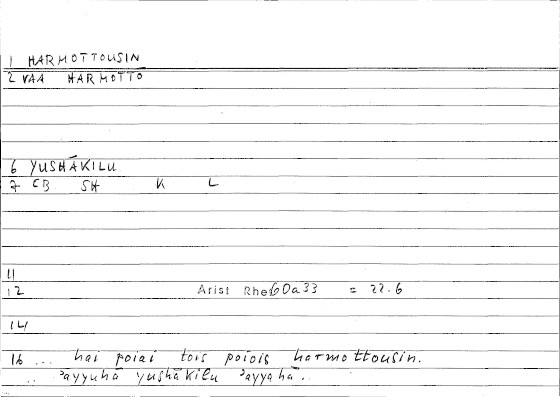 1 HARMOTTOUSIN
2 VAA HARMOTTO
6 YUSHĀKILU
7 CB SH K L
11
12 Arist Rhet60a33 = 22.6
14
16 ... hai poiai tois poiois harmottousin.
.. ʾayyuhā yushākilu ʾayyahā..